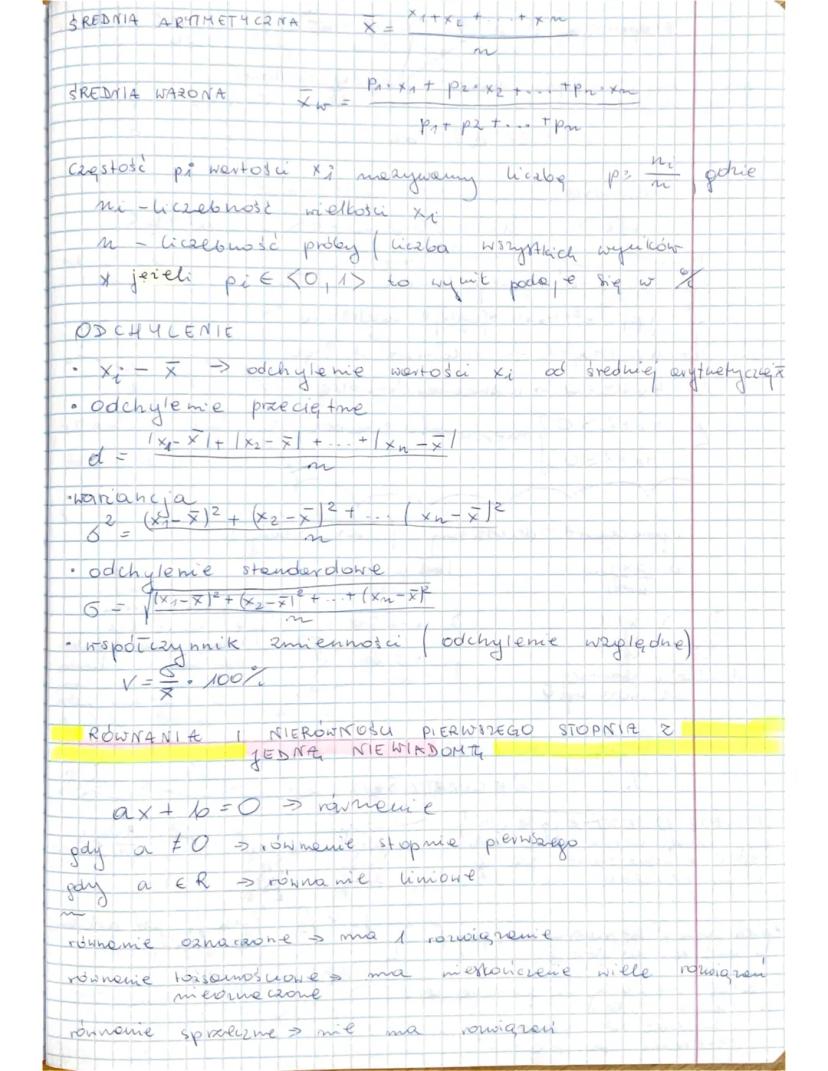 ŚREDNIA ARYTMETYCZNA x̄ = (x₁+x₂+...+xn)/n
ŚREDNIA WAŻONA x̄w = (p₁·x₁ + p₂·x₂ + ... + pn·xn)/(p₁ + p₂ + ... + pn)
Częstość pi wartości xi nazywamy liczbę p= ni/n gdzie
ni - liczebność wielkości xi
n - liczebność próby ( liczba wszystkich wyników
* jeżeli pi ∈ <0,1> to wynik podaje się w %
ODCHYLENIE
• xi − x̄ → odchylenie wartości xi od średniej arytmetycznej x̄
• odchylenie przeciętne
d = (|x₁−x̄| + |x₂−x̄| + ... + |xn−x̄|)/n
• wariancja
σ² = ((x₁−x̄)² + (x₂−x̄)² + ... (xn−x̄)²)/n
• odchylenie standardowe
σ = √(((x₁−x̄)² + (x₂−x̄)² + ... + (xn−x̄)²)/n)
• współczynnik zmienności ( odchylenie względne)
V = σ/x̄ · 100%
RÓWNANIA I NIERÓWNOŚCI PIERWSZEGO STOPNIA Z
JEDNĄ NIEWIADOMĄ
ax + b = 0 → równanie
gdy a ≠ 0 → równanie stopnia pierwszego
gdy a ∈ R → równanie liniowe
równanie oznaczone → ma 1 rozwiązanie
równanie tożsamościowe → ma nieskończenie wiele rozwiązań
nieoznaczone
równanie sprzeczne → nie ma rozwiązań